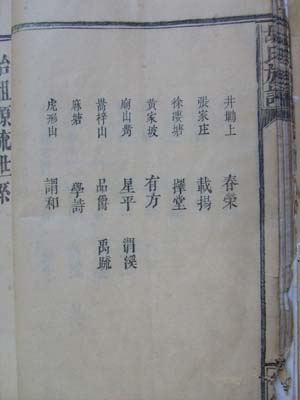 氏族譜
井上 春榮
張家庄 載揚
徐塘 擇堂
黃家坡 有方
廟山 星平 渭溪
梓山 品爵 禹疏
麻塘 學詩
虎形山 謂和
始祖源流世系